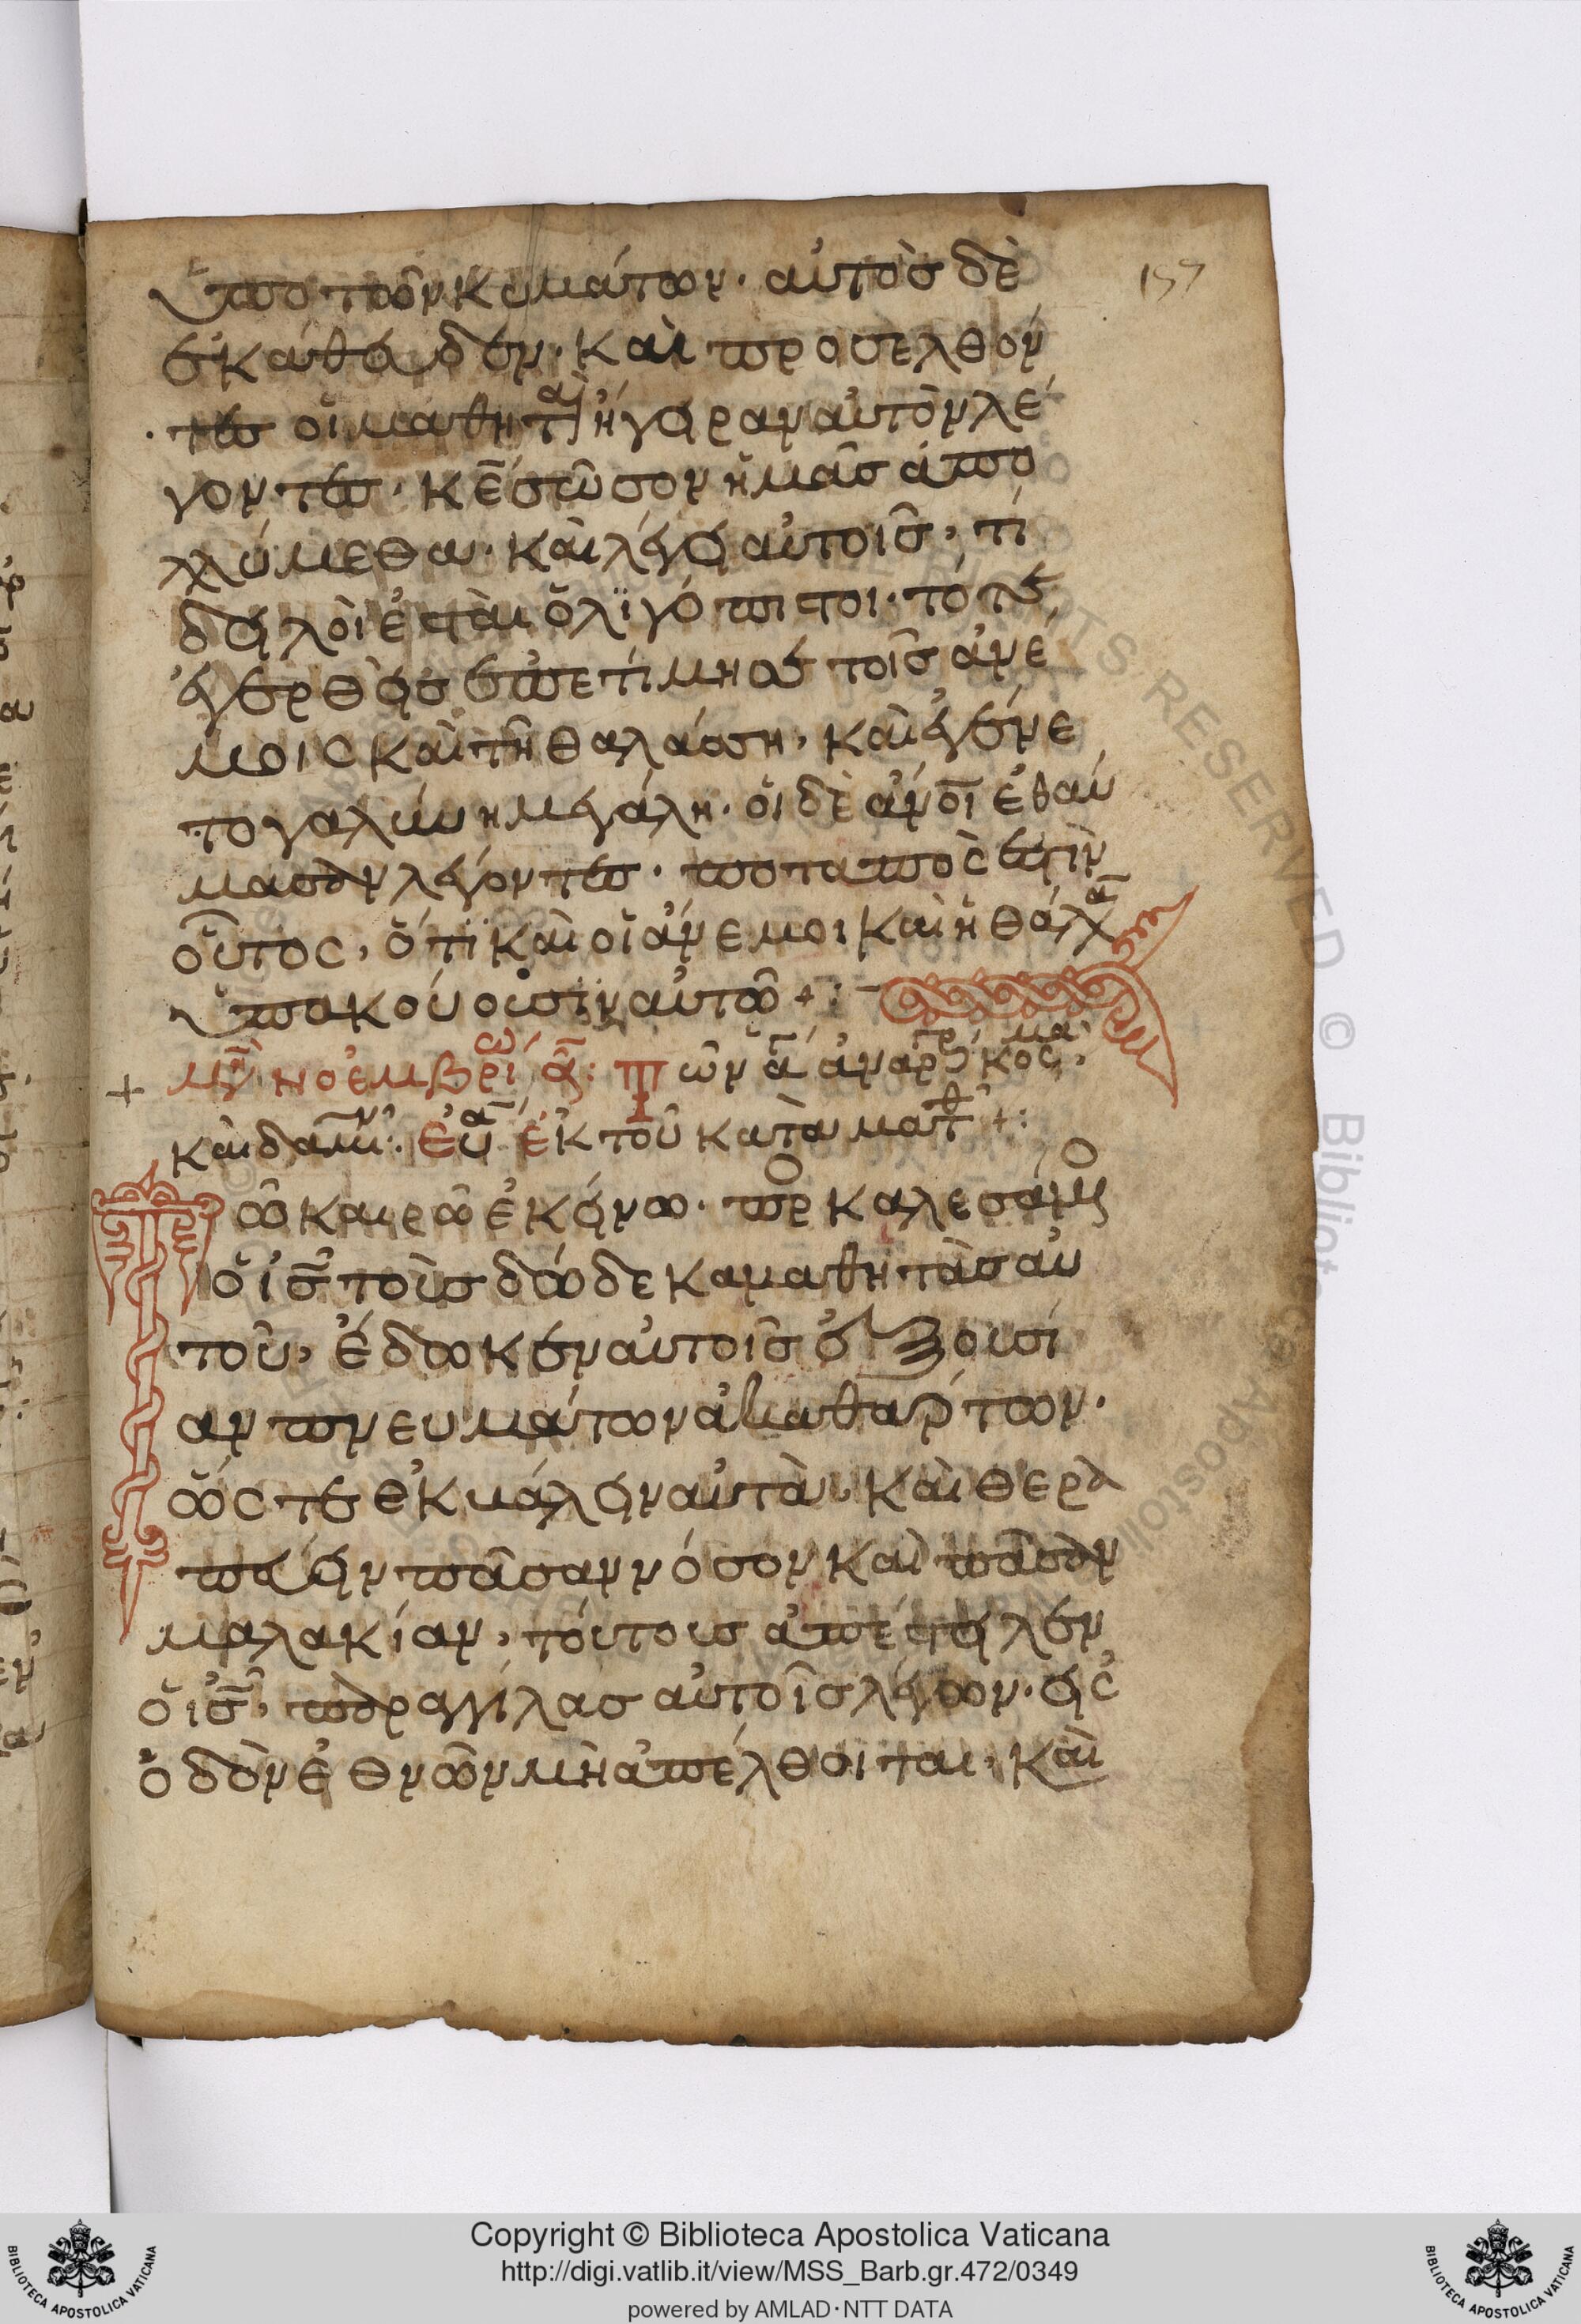 157
ὑπο τῶν κυμάτων· αὐτὸσ δὲ
ἐκάθευδεν· καὶ προσελθόν
τεσ οἱ μαθηταὶ ἤγειραν αὐτὸν λέ
γοντεσ· κ̅ε̅ σῶσον ἡμᾶσ ἀπο
λλύμεθα· καὶ λέγει αὐτοῖσ, τί
δειλοὶ ἐσται ὀλϊγόπιστοι· τότε
ἐγερθεὶσ ἐπετίμησε τοῖσ ἀνέ
μοις καὶ τῆ θαλάσση, καὶ ἐγένε
το γαλίνη μεγάλη· οἱ δὲ ἀν̅ο̅ι̅ ἐθαύ
μασαν λέγοντεσ· ποταπὸς ἐστὶν
οὗτος, ὅτι καὶ οἱ ἄνεμοι καὶ ἡ θάλα
ὑπακούουσιν αὐτῶ +:-
+ μν νοεμβρίω α: Τῶν ἁ ἀναργ κοσμα,
καὶ δαμιν: εὐα ἐκ τοῦ κατὰ ματθ +:
Τῶ καιρῶ ἐκείνω· προκαλεσάμενο
ὁ ἰ̅σ̅ τοὺσ δώδεκα μαθητὰσ αὐ
τοῦ, ἔδωκεν αὐτοῖσ ἐξουσί
αν πνευμάτων ἀκαθάρτων·
ὥς τε ἐκβάλειν αὐτὰ· καὶ θερα
παύειν πᾶσαν νόσον καὶ πᾶσαν
μαλακίαν, τούτουσ ἀπέστειλεν
ὁ ἰ̅σ̅, παραγγίλασ αὐτοῖσ λέγων· εἰς
ὁδὸν ἐθνῶν μὴ ἀπέλθοιται, καὶ
Copyright © Biblioteca Apostolica Vaticana
http://digi.vatlib.it/view/MSS_Barb.gr.472/0349
powered by AMLAD·NTT DATA
BIBLIOTECA APOSTOLICA VATICANA
BIBLIOTECA APOSTOLICA VATICANA